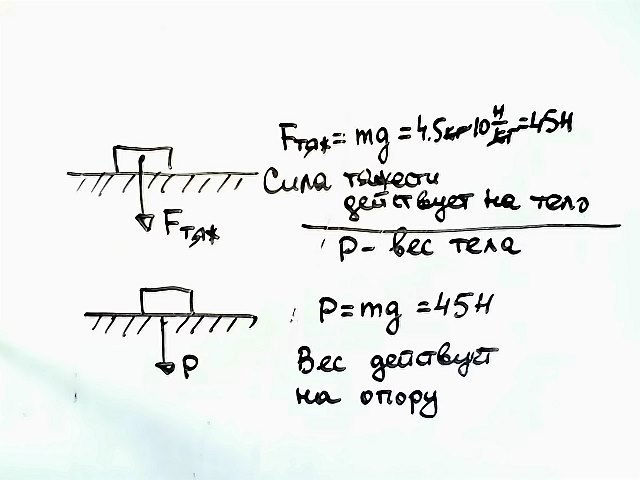 Fтяж = mg = 4.5кг · 10 Н/кг = 45Н
Сила тяжести
действует на тело
Fтяж
P - вес тела
P = mg = 45Н
Вес действует
на опору
P